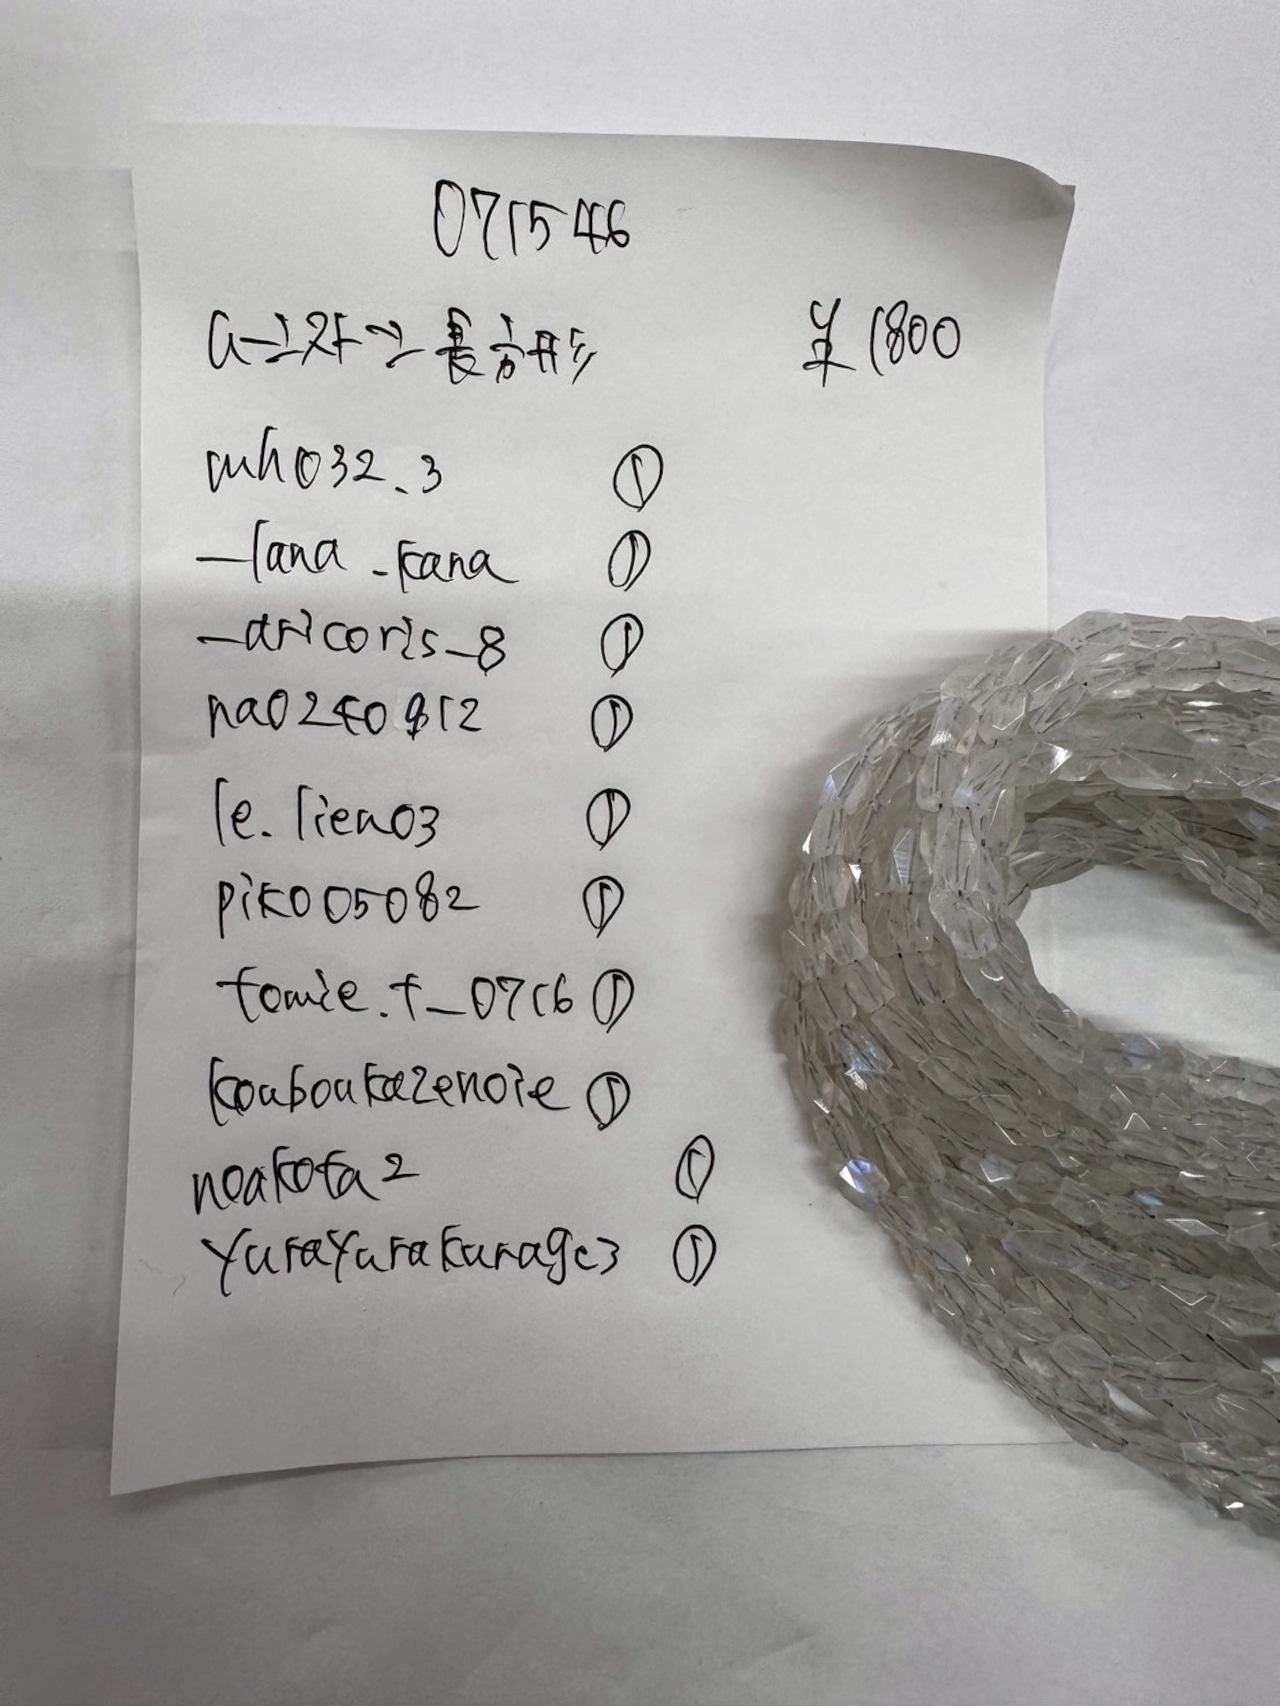 071546
ムーンストーン 長方形 ¥1800
mh032.3 ①
_lana_kana ①
_aricoris_8 ①
na0240912 ①
le.lien03 ①
piko05082 ①
tomie.t_0716 ①
kouboukazenoie ①
noakota2 ①
yurayurakurage3 ①